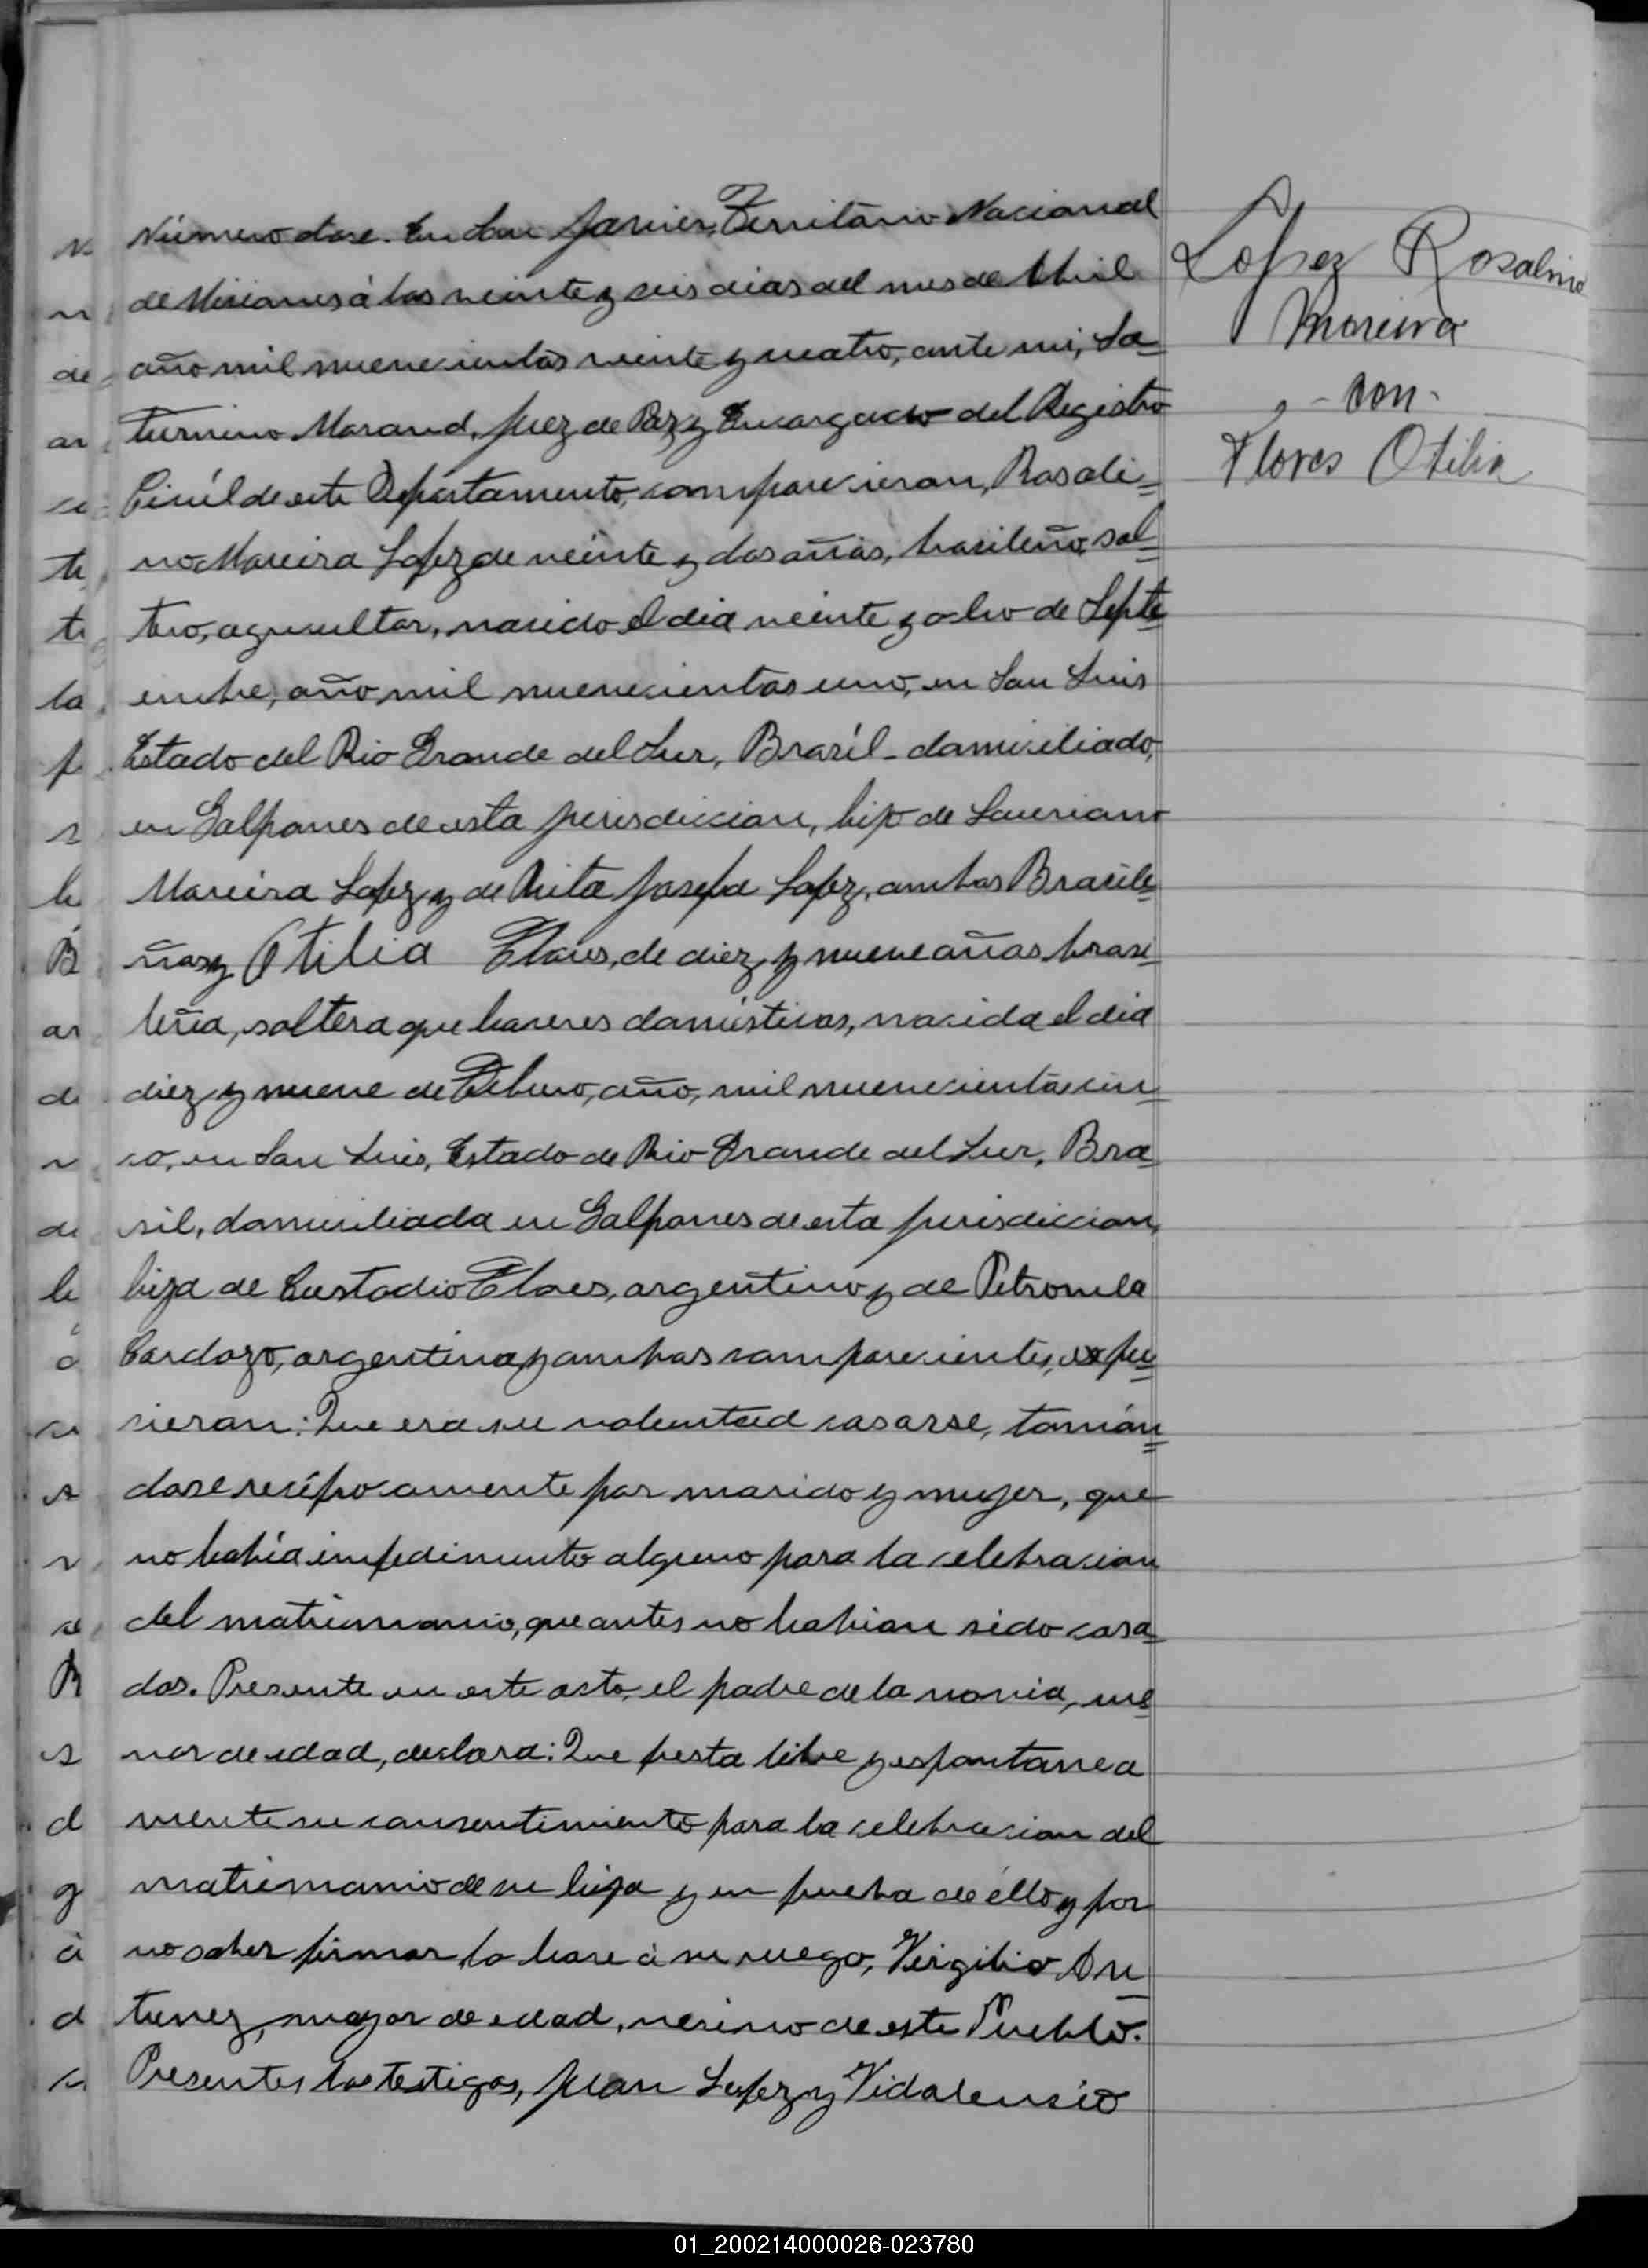 Número doce. En San Javier, Territorio Nacional
de Misiones á los veinte y seis dias del mes de Abril
año mil nuevecientos veinte y cuatro, ante mi, Sa=
turnino Morand, Juez de Paz y Encargado del Registro
Civíl de este Departamento, comparecieron, Rosali=
no Moreira Lopez de veinte y dos años, brasileño, sol=
tero, agricultor, nacido el dia veinte y ocho de Septi=
embre, año mil nuevecientos uno, en San Luis
Estado del Rio Grande del Sur, Brasíl - domiciliado,
en Galpones de esta jurisdiccion, hijo de Laureano
Moreira Lopez y de Rita Josefa Lopez, ambos Brasile=
ños y Otilia Flores, de diez y nueve años brasi=
leña, soltera quehaceres domésticos, nacida el dia
diez y nueve de Febrero, año, mil nuevecientos cin=
co, en San Luis, Estado de Rio Grande del Sur, Bra=
sil, domiciliada en Galpones de esta jurisdiccion,
hija de Custodio Flores, argentino y de Petronila
Cardozo, argentina y ambos comparecientes, expu=
sieron: Que era su voluntad casarse, tomán=
dose recíprocamente por marido y mujer, que
no había impedimento alguno para la celebracion
del matrimonio, que antes no habian sido casa=
dos. Presente en este acto, el padre de la novia, me=
nor de edad, declara: Que presta libre y espontanea
mente su consentimiento para la celebracion del
matrimonio de su hija y en prueba de éllo y por
no saber firmar, lo hace à su ruego, Virgilio An=
tunez, mayor de edad, vecino de este Pueblo.
Presentes los testigos, Juan Lopez y Vidalencio
Lopez Rosalino
Moreira
- con -
Flores Otilia
01_200214000026-023780